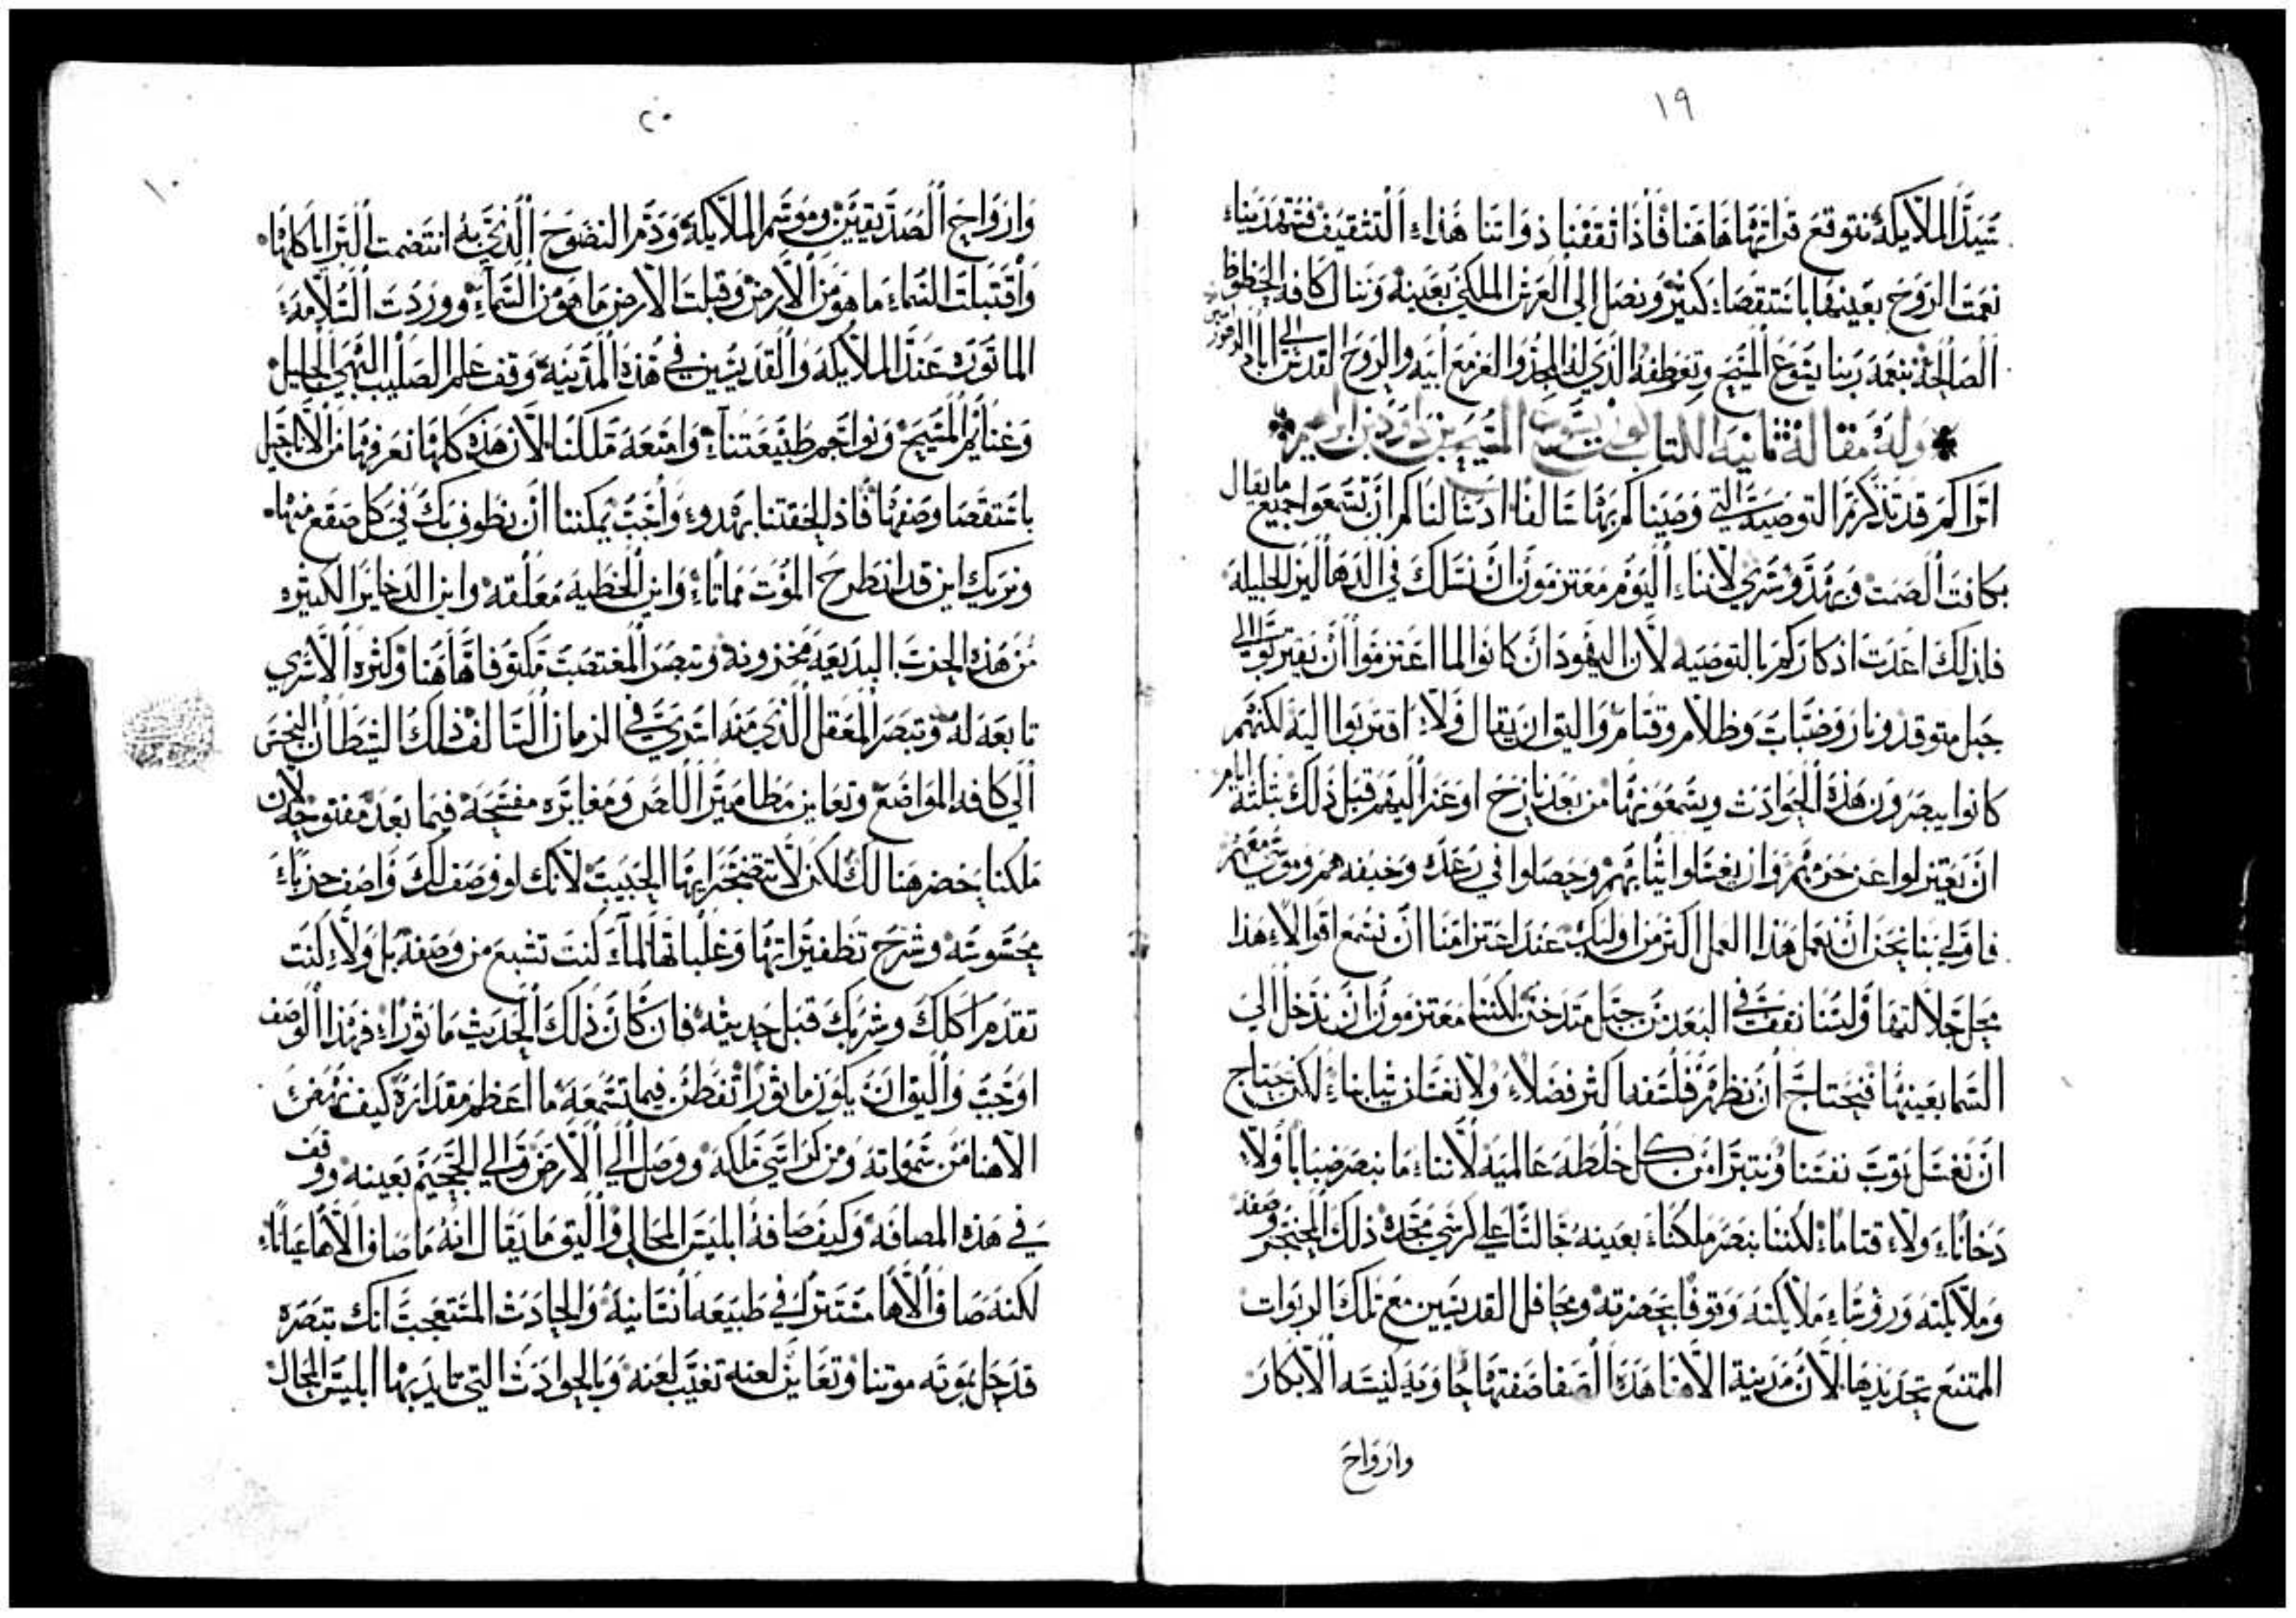 ١٩
سيد الملايكة نتوقع قراتها هاهنا فاذا ثقفنا ذواتنا هذا التثقيف فستهدينا
نعمت الروح بعينها باستقصاء كثير ونصل الى العرش الملكي بعينه وننال كافة الحظوظ
الصالحة بنعمة ربنا يسوع المسيح وتعطفه الذي له المجد والعز مع ابيه والروح القدس الى اباد الدهور امين
وله مقالة ثانية لكتاب كون يسوع المسيح بن داود بن ابراهيم
اتراكم قد تذكرتم التوصية التي وصيناكم بها سالفا اذ سالناكم ان تسمعوا جميع ما يقال
بكافت الصمت وبهدو سري لاننا اليوم معتزمون ان نسلك في الدهاليز الجليلة
فلذلك اعدت اذكاركم بالتوصية لان اليهود ان كانوا لما اعتزموا ان يقتربوا الى
جبل متوقد ونار وضباب وظلام وقتام واليق ان يقال ولا اقتربوا اليه لكنهم
كانوا يبصرون هذه الحوادث ويسمعونها من بعد نازح اوعز اليهم قبل ذلك بثلثة ايام
ان يعتزلوا عن حريمهم وان يغسلوا ثيابهم وحصلوا في رعدة وخيفة هم وموسى معهم
فاولى بنا نحن ان نعمل هذا العمل اكثر من اوليك عند اعتزامنا ان نسمع اقوالا هذا
محل جلالتها ولسنا نقف في البعد من جبل متدخن لكننا معتزمون ان ندخل الى
السما بعينها فنحتاج ان نظهر فلسفه اكثر فضلا ولا نغسل ثيابنا لكن نحتاج
ان نغسل ثوب نفسنا ونتبرا من كل خلطة عالمية لاننا ما نبصر ضبابا ولا
دخانا ولا قتاما لكننا نبصر ملكنا بعينه جالسا على كرسي مجده ذلك المحتجز وصفه
وملايكته ورؤسا ملايكته وقوفا بحضرته ومحافل القديسين مع تلك الربوات
الممتنع تحديدها لان مدينة الاهنا هذه الصفا صفتها حاوية كنيسة الابكار
وارواح
٢٠
١٠
وارواح الصديقين وموسم الملايكة ودم النضوح الذي به انتضمت البرايا كلها
واقتبلت السماء ما هو من الارض وقبلت الارض ما هو من السماء ووردت السلامة
الماثورة عند الملايكة والقديسين في هذه المدينة وقف علم الصليب البهي الجليل
وغنايم المسيح وبواجم طبيعتنا وامتعة ملكنا لان هذه كلها نعرفها من الاناجيل
باستقصا وصفها فاذ لحقتنا بهدو واجب يمكننا ان نطوف بك في كل صقع منها
ونريك اين قد انطرح الموت مماتا واين الخطية معلقة واين الدخاير الكثيره
من هذه الحرب البديعة مخزونة وتبصر المغتصب مكتوفا هاهنا وكثرة الاسرى
تابعة له وتبصر المعقل الذي منه اسرى في الزمان السالف ذلك الشيطان النجس
الى كافة المواضع وتعاين مطامير اللص ومغايره مفتحة فيما بعد مفتوحة لان
ملكنا حضر هنالك لكن لا تتضجر ايها الحبيب لانك لو وصف لك واصف حربا
محسوسة وشرح تظفيراتها وغلباتها لما كنت تشبع من وصفه بل ولا كنت
تقدم اكلك وشربك قبل حديثه فان كان ذلك الحديث ماثورا فهذا الوصف
اوجب واليق ان يكون ماثورا تفطن فيما تسمعه ما اعظم مقداره كيف نهض
الاهنا من سمواته ومن كراسي ملكه ووصل الى الارض والى الجحيم بعينه ووقف
في هذه المصافة وكيف صافه ابليس المحال واليق ما يقال انه ما صاف الاها عيانا
لكنه صاف الاها مستترا في طبيعة انسانية والحادث المستعجب انك تبصره
قد حل بموته موتنا وتعاين لعنة تغيب لعنة وبالحوادث التي تايد بها ابليس المحال